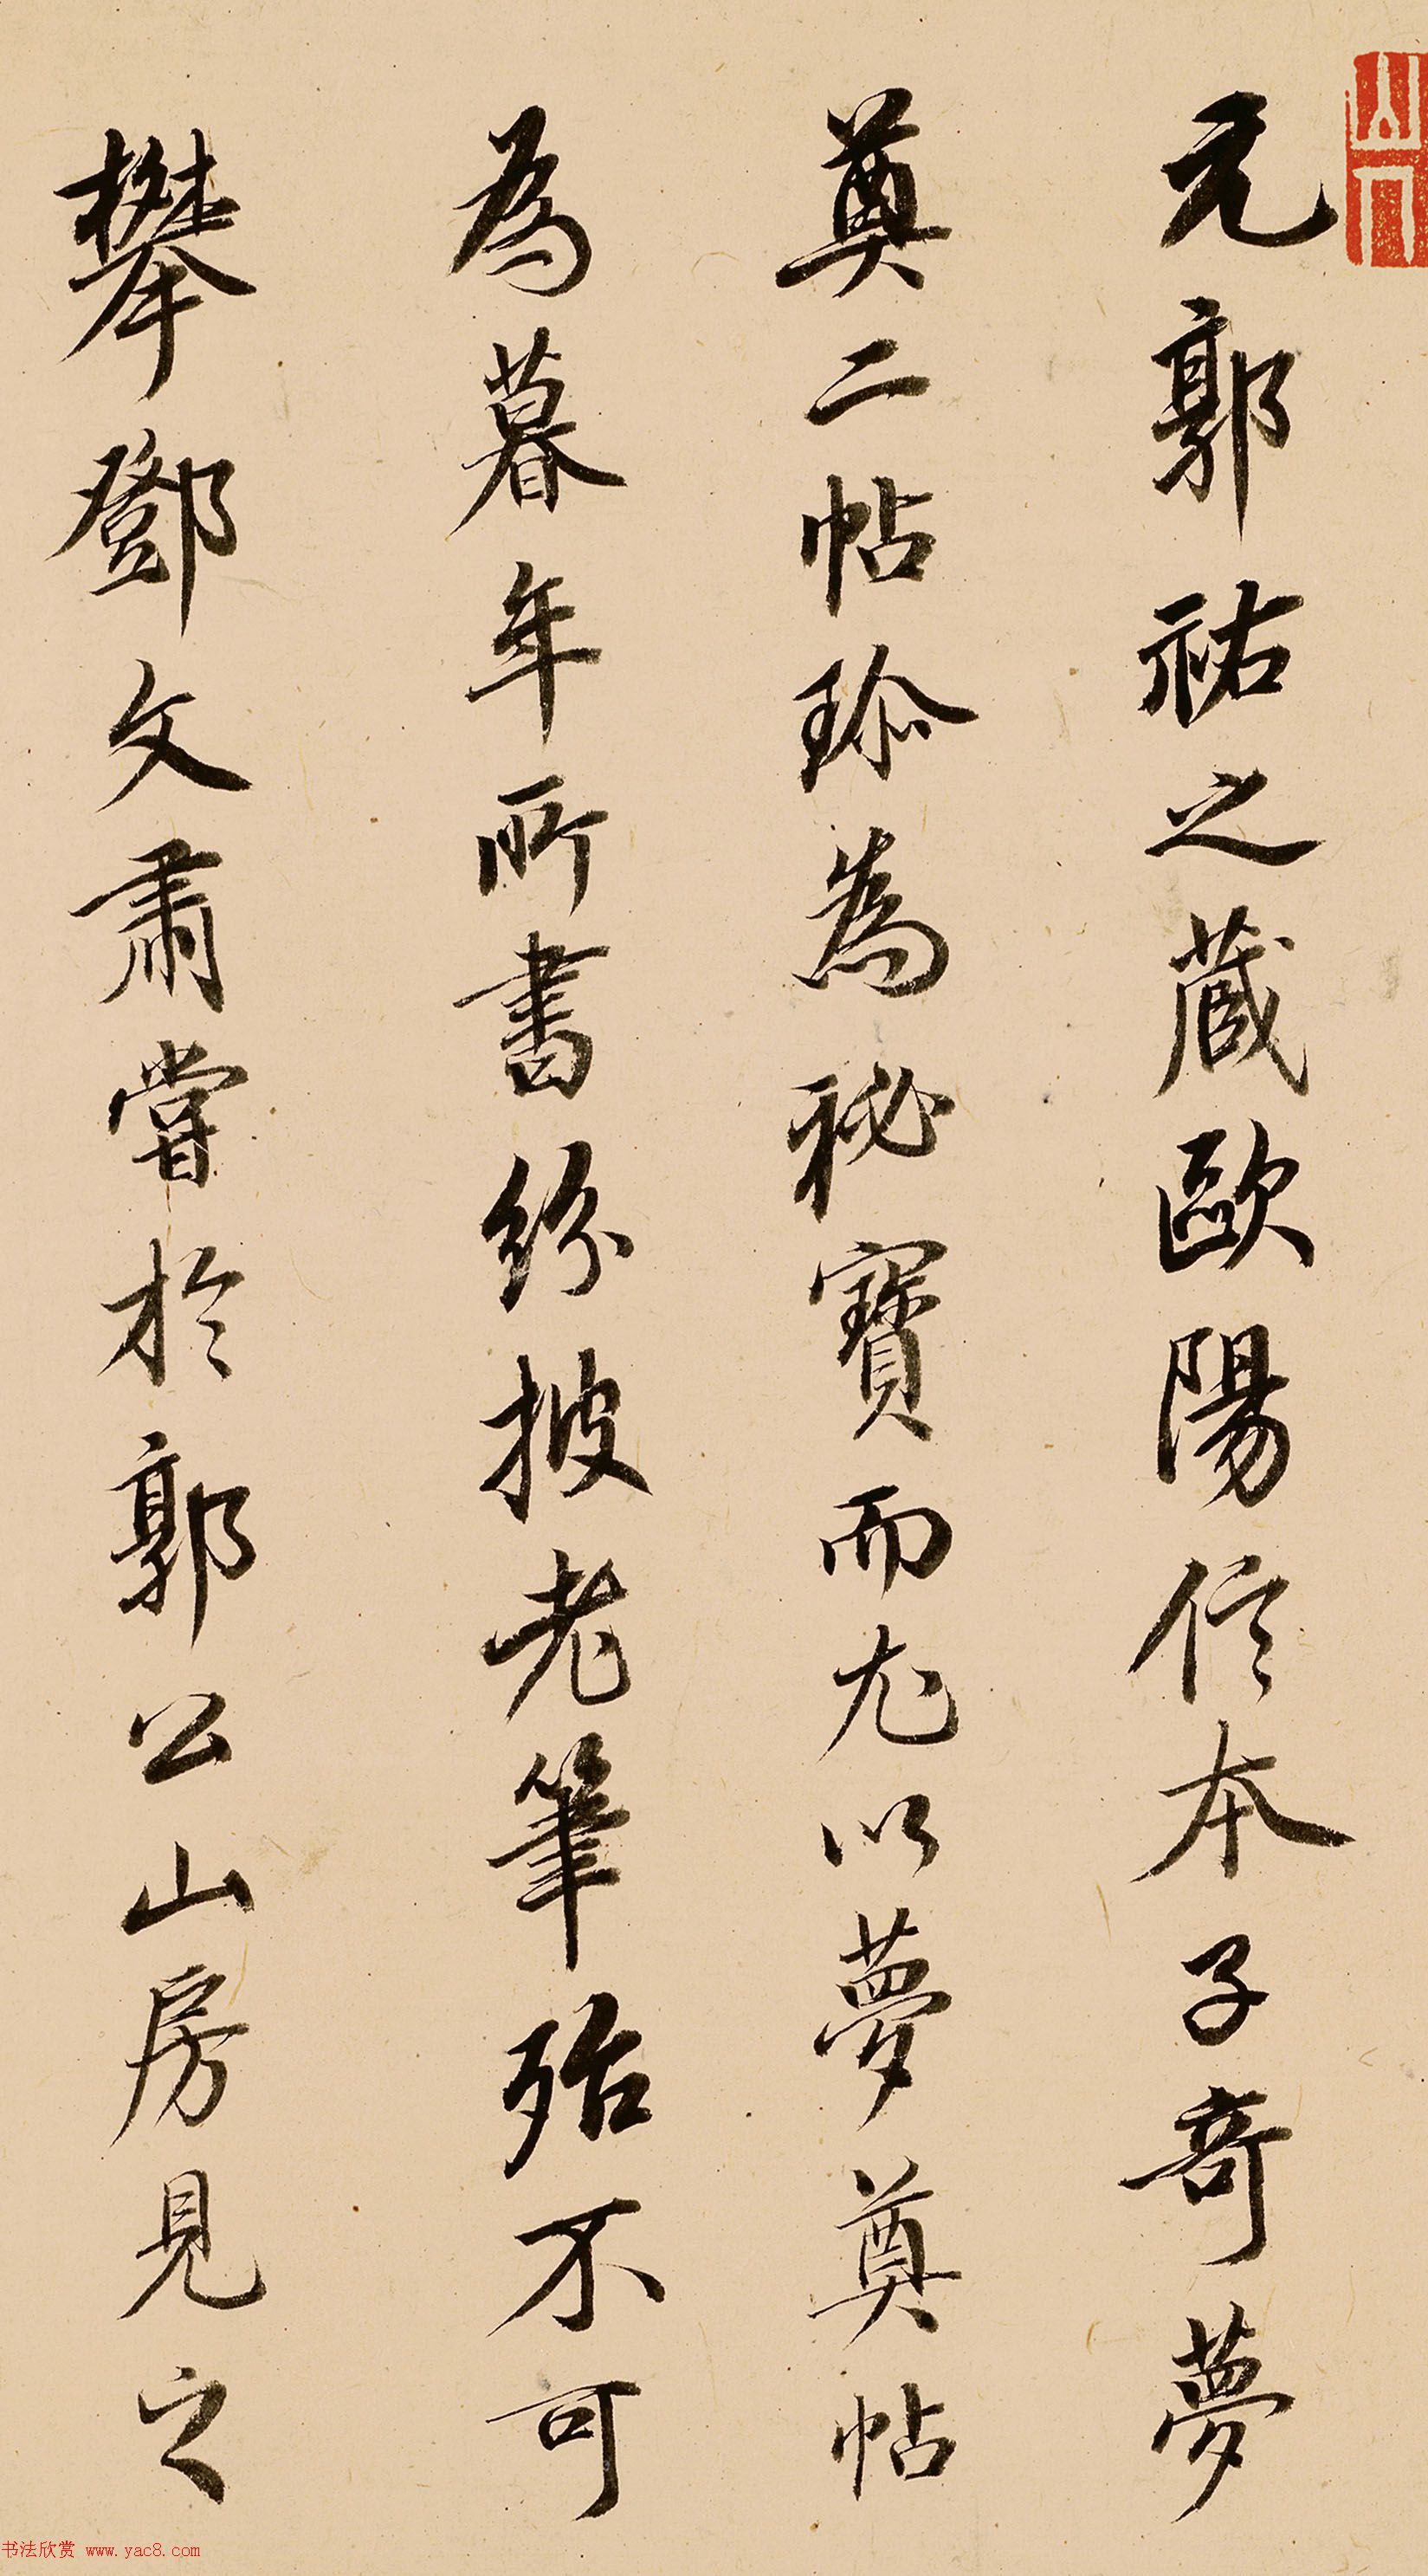 元郭祐之藏歐陽信本子奇夢
奠二帖珎為秘寶而尤以夢奠帖
為暮年所書紛披老筆殆不可
攀鄧文肅嘗於郭公山房見之
书法欣赏 www.yac8.com